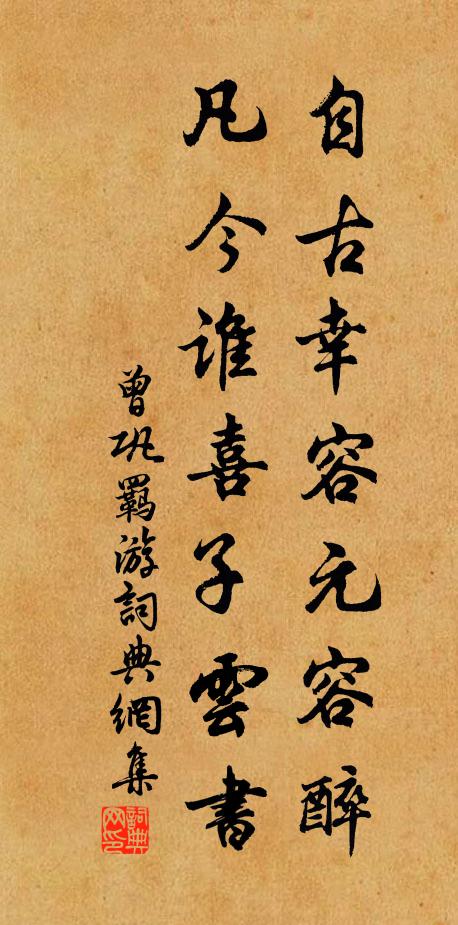 自古幸容元容醉
凡今谁喜子雲書
曾巩羈游詞典網集
詞典網印